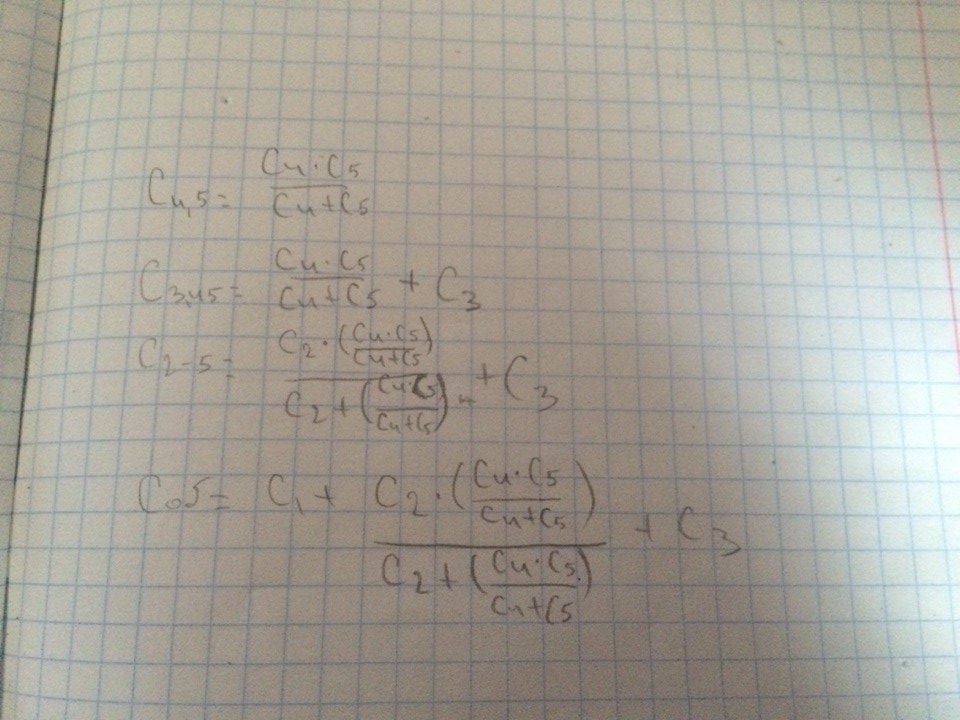 C4,5 = (C4·C5)/(C4+C5)
C3,45 = (C4·C5)/(C4+C5) + C3
C2-5 = (C2·((C4·C5)/(C4+C5)))/(C2+((C4·C5)/(C4+C5))) + C3
Cоб = C1 + (C2·((C4·C5)/(C4+C5)))/(C2+((C4·C5)/(C4+C5))) + C3